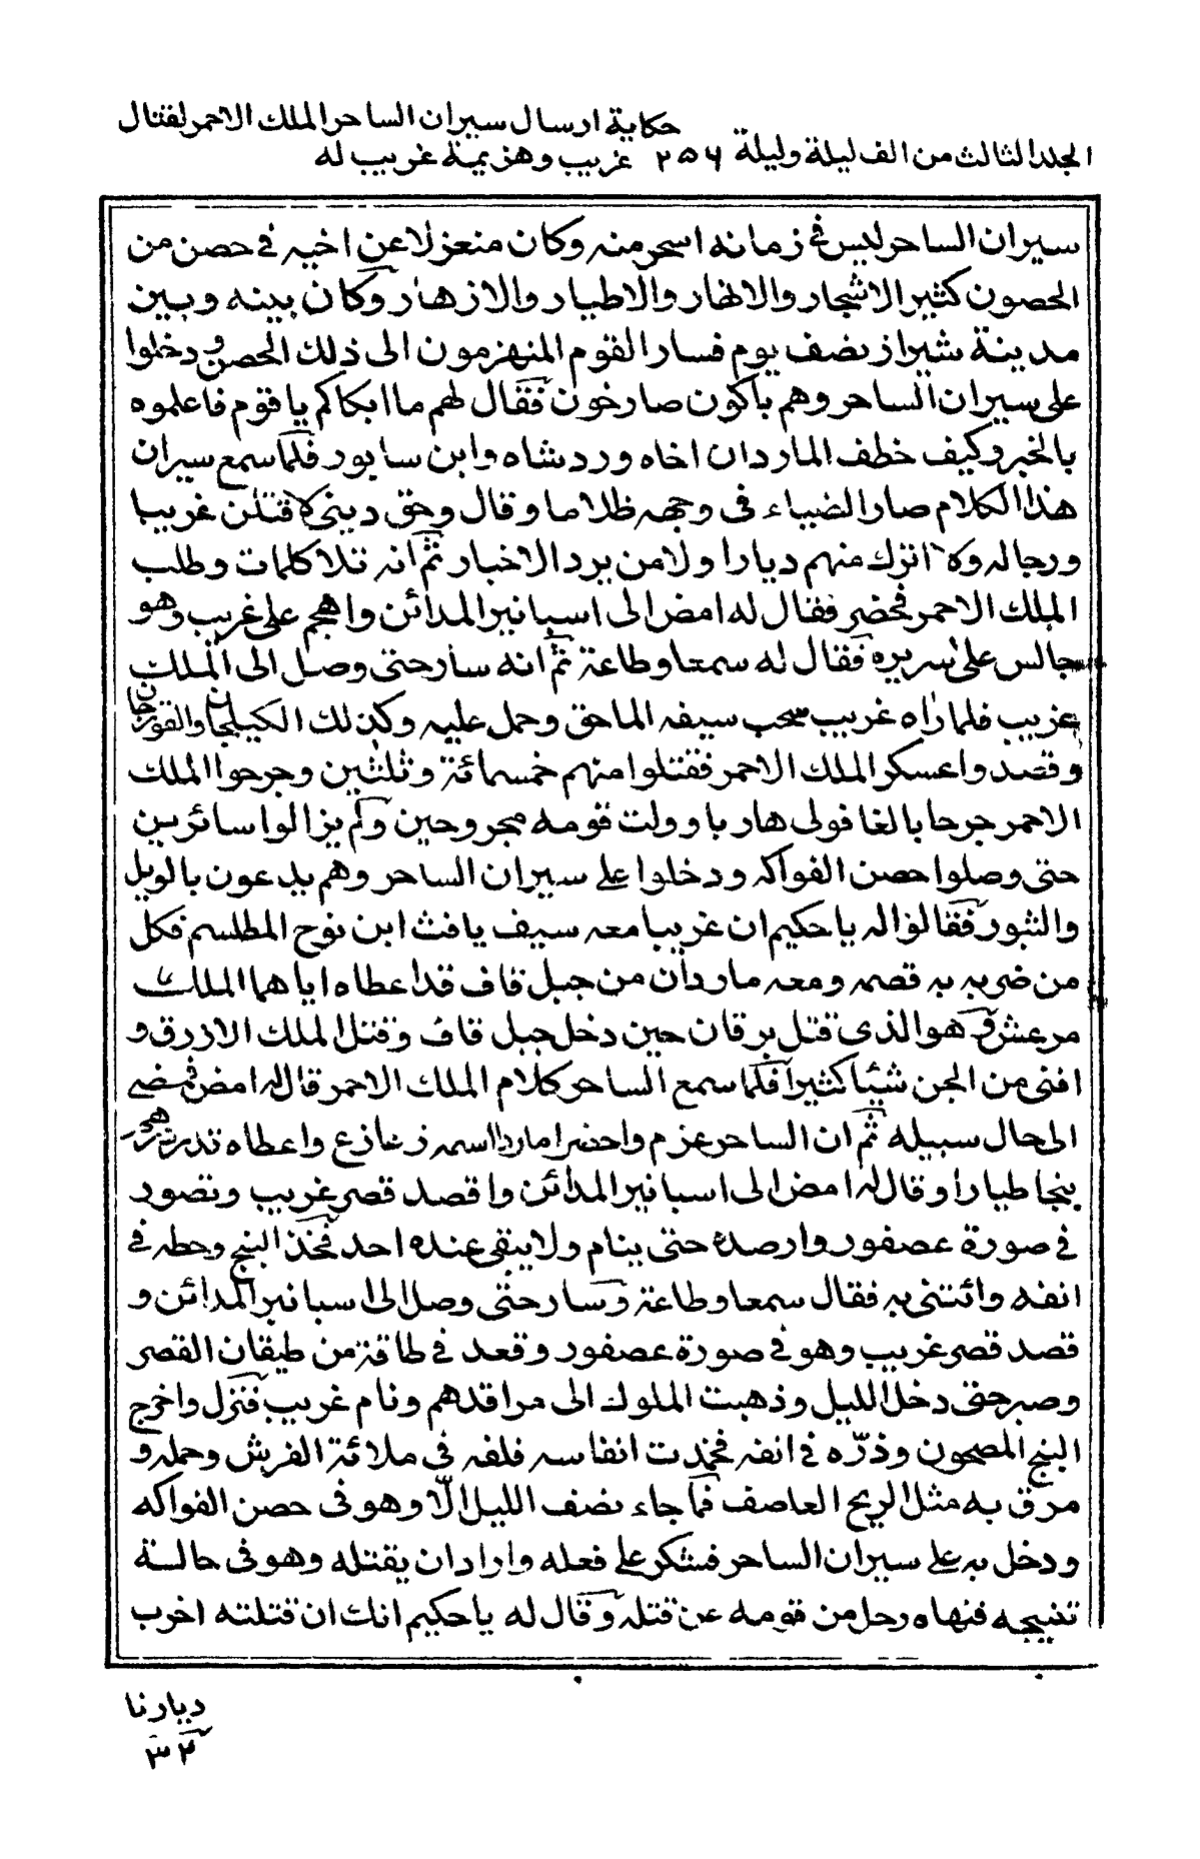 حكاية ارسال سيران الساحر الملك الاحمر لقتال
الجلد الثالث من الف ليلة وليلة ٢٥٦ غريب وهزيمة غريب له
سيران الساحر ليس فى زمانه اسحر منه وكان منعزلا عن اخيه فى حصن من
الحصون كثير الاشجار والانهار والاطيار والازهار وكان بينه وبين
مدينة شيراز نصف يوم فسار القوم المنهزمون الى ذلك الحصن ودخلوا
على سيران الساحر وهم باكون صارخون فقال لهم ما ابكاكم يا قوم فاعلموه
بالخبر وكيف خطف الماردان اخاه وردشاه وابن سابور فلما سمع سيران
هذا الكلام صار الضياء فى وجهه ظلاما وقال وحق دينى لاقتلن غريبا
ورجاله ولا اترك منهم ديارا ولا من يرد الاخبار ثم انه تلا كلمات وطلب
الملك الاحمر فحضر فقال له امض الى اسبانير المدائن واهجم على غريب وهو
جالس على سريره فقال له سمعا وطاعة ثم انه سار حتى وصل الى الملك
غريب فلما راه غريب سحب سيفه الماحق وحمل عليه وكذلك الكيلجان والقورجان
وقصدوا عسكر الملك الاحمر فقتلوا منهم خمسمائة وثلثين وجرحوا الملك
الاحمر جرحا بالغا فولى هاربا وولت قومه مجروحين ولم يزالوا سائرين
حتى وصلوا حصن الفواكه ودخلوا على سيران الساحر وهم يدعون بالويل
والثبور فقالوا له يا حكيم ان غريبا معه سيف يافث ابن نوح المطلسم فكل
من ضربه به قصمه ومعه ماردان من جبل قاف قد اعطاه اياهما الملك
مرعش وهو الذى قتل برقان حين دخل جبل قاف وقتل الملك الازرق و
افنى من الجن شيئا كثيرا فلما سمع الساحر كلام الملك الاحمر قال له امض فمضى
الى حال سبيله ثم ان الساحر عزم واحضر ماردا اسمه زعازع واعطاه قدر درهم
بنجا طيارا وقال له امض الى اسبانير المدائن واقصد قصر غريب وتصور
فى صورة عصفور وارصده حتى ينام ولا يبقى عنده احد فخذ البنج وحطه فى
انفه وائتنى به فقال سمعا وطاعة وسار حتى وصل الى اسبانير المدائن و
قصد قصر غريب وهو فى صورة عصفور وقعد فى طاقة من طيقان القصر
وصبر حتى دخل الليل وذهبت الملوك الى مراقدهم ونام غريب فنزل واخرج
البنج المصحون وذرّه فى انفه فخمدت انفاسه فلفه فى ملائة الفرش وحمله و
مرق به مثل الريح العاصف فما جاء نصف الليل الّا وهو فى حصن الفواكه
ودخل به على سيران الساحر فشكر على فعله واراد ان يقتله وهو فى حالة
تبنيجه فنهاه رجل من قومه عن قتله وقال له يا حكيم انك ان قتلته اخرب
ديارنا
٣٢